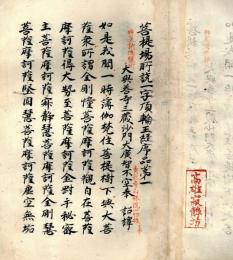 菩提場所説一字頂輪王経序品第一
大興善寺三藏沙門大廣智不空奉 詔譯
如是我聞一時薄伽梵住菩提樹下與大菩
薩衆所謂金剛幢菩薩摩訶薩觀自在菩薩
摩訶薩得大勢至菩薩摩訶薩金剛手秘密
主菩薩摩訶薩寂静慧菩薩摩訶薩金剛慧
菩薩摩訶薩堅固慧菩薩摩訶薩虚空無垢